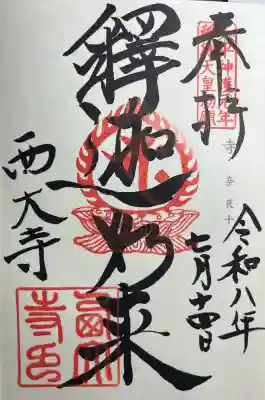 奉拝
令和八年
七月十四日
釋迦如来
西大寺